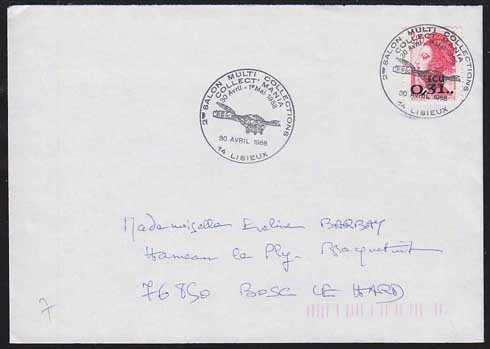 2ème SALON MULTI COLLECTIONS
COLLECT' MANIA
30 Avril - 1er Mai 1988
30 AVRIL 1988
14 LISIEUX
2ème SALON MULTI COLLECTIONS
COLLECT' MANIA
30 Avril
ECU
0,31
30 AVRIL 1988
14 LISIEUX
Mademoiselle Eveline BARBAY
Hameau le
76850 BOSC LE HARD
7